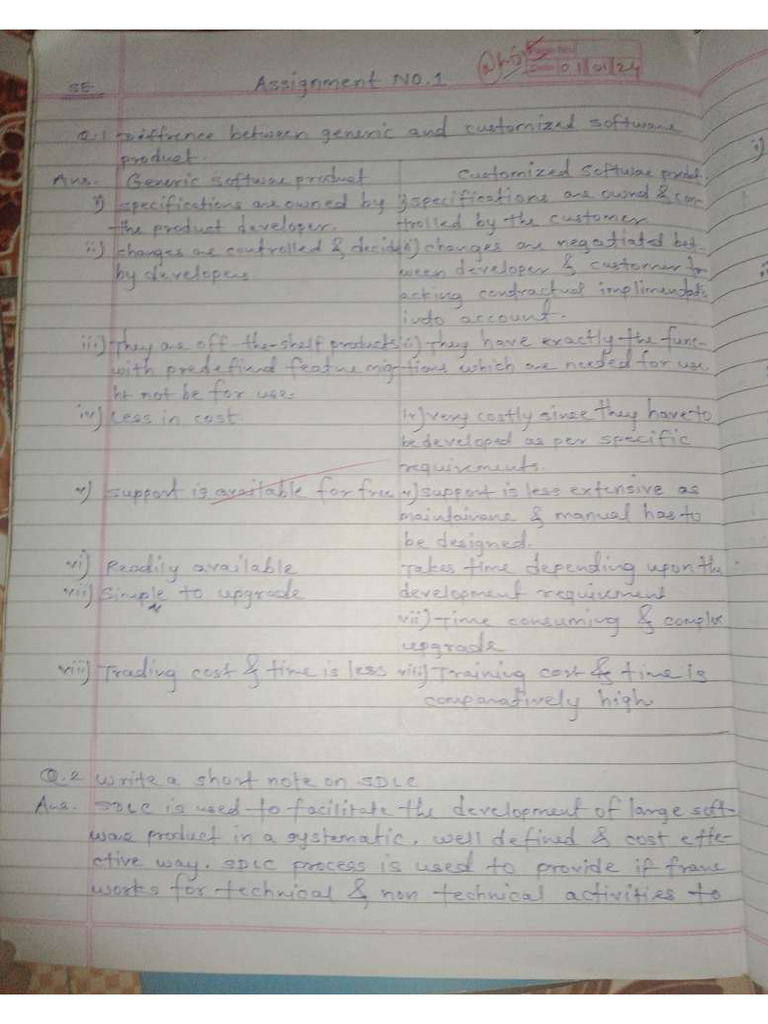 SE.
Assignment NO.1
Date 01/01/24
Q.1 Diffrence between generic and customized software
product.
Ans. Generic software product
customized software produ.
i) specifications are owned by
the product developer.
i) specifications are ownd & con-
trolled by the customer
ii) changes are controlled & decide
by developers.
ii) changes are negatiated bet-
ween developer & customer ta-
acking contractual implimentat
into account.
iii) They are off-the-shelf products
with predefined feature mig-
ht not be for use.
ii) They have exactly the func-
tions which are needed for use
iv) Less in cost
iv) very costly since they have to
be developed as per specific
requirements.
v) support is available for free
v) support is less extensive as
maintainane & manual has to
be designed.
vi) Readily available
Takes time depending upon the
development requirement
vii) Simple to upgrade
vii) Time consuming & complex
upgrade
viii) Trading cost & time is less
viii) Training cost & time is
comparatively high
Q.2 write a short note on SDLC
Ans. SDLC is used to facilitate the development of large soft-
ware product in a systematic, well defined & cost effe-
ctive way. SDLC process is used to provide if frame
works for technical & non technical activities to